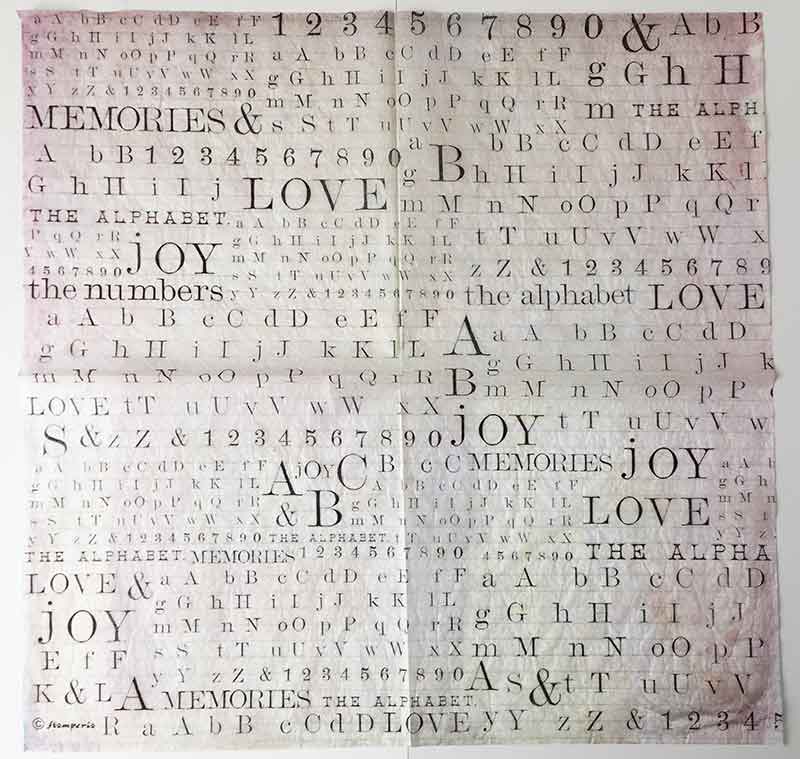 a A b B cC dD eE f F 1 2 3 4 5 6 7 8 9 0 & A b B
g G h H i I j J k K lL a A b B cC dD eE f F
m M n N oO pP qQ rR g G h H i I j J k K lL g G h H
s S t T uU vV wW xX
y Y zZ & 1 2 3 4 5 6 7 8 9 0 m M n N oO p P q Q r R m THE ALPH
MEMORIES & s S t T uU vV wW xX
A b B 1 2 3 4 5 6 7 8 9 0 a B b B cC dD eE f
G h H i I j LOVE g h H i I j J k K l
THE ALPHABET. a A b B cC dD eE f F m M n N oO p P q Q r
P qQ rR joy g G h H i I j J k K lL t T uU vV wW x
V wW xX m M n N oO pP qQ rR
4 5 6 7 8 9 0 s S t T uU vV wW xX z Z & 1 2 3 4 5 6 7 8 9
the numbers y Y zZ & 1 2 3 4 5 6 7 8 9 0 the alphabet LOVE
a A b B cC dD eE f F A a A b B cC dD
g G h H i I j J k K lL g G h H i I j J k
m M n N oO p P q Q r R B m M n N oO p P
LOVE tT uU vV wW xX joy t T uU vV w
S & z Z & 1 2 3 4 5 6 7 8 9 0
a A b B cC dD eE f F A joy C B c C MEMORIES joy a A b
g G h H i I j J k K lL A b B cC dD eE f F g G h
m M n N oO pP qQ rR & B g G h H i I j J k K lL LOVE m M n
s S t T uU vV wW xX m M n N oO pP qQ rR
y Y zZ & 1 2 3 4 5 6 7 8 9 0 THE ALPHABET. t T uU vV wW xX y Y z
THE ALPHABET. MEMORIES 1 2 3 4 5 6 7 8 9 0 4 5 6 7 8 9 0 THE ALPHA
LOVE & a A b B cC dD eE f F a A b B cC dD
joy g G h H i I j J k K lL g G h H i I j J
m M n N oO pP qQ rR
E f F s S t T uU vV wW xX m M n N oO p P
y Y zZ & 1 2 3 4 5 6 7 8 9 0
K & L A MEMORIES THE ALPHABET. A s & t T uU vV
© stamperia R a A b B cC dD LOVE yY z Z & 1 2 3 4 5